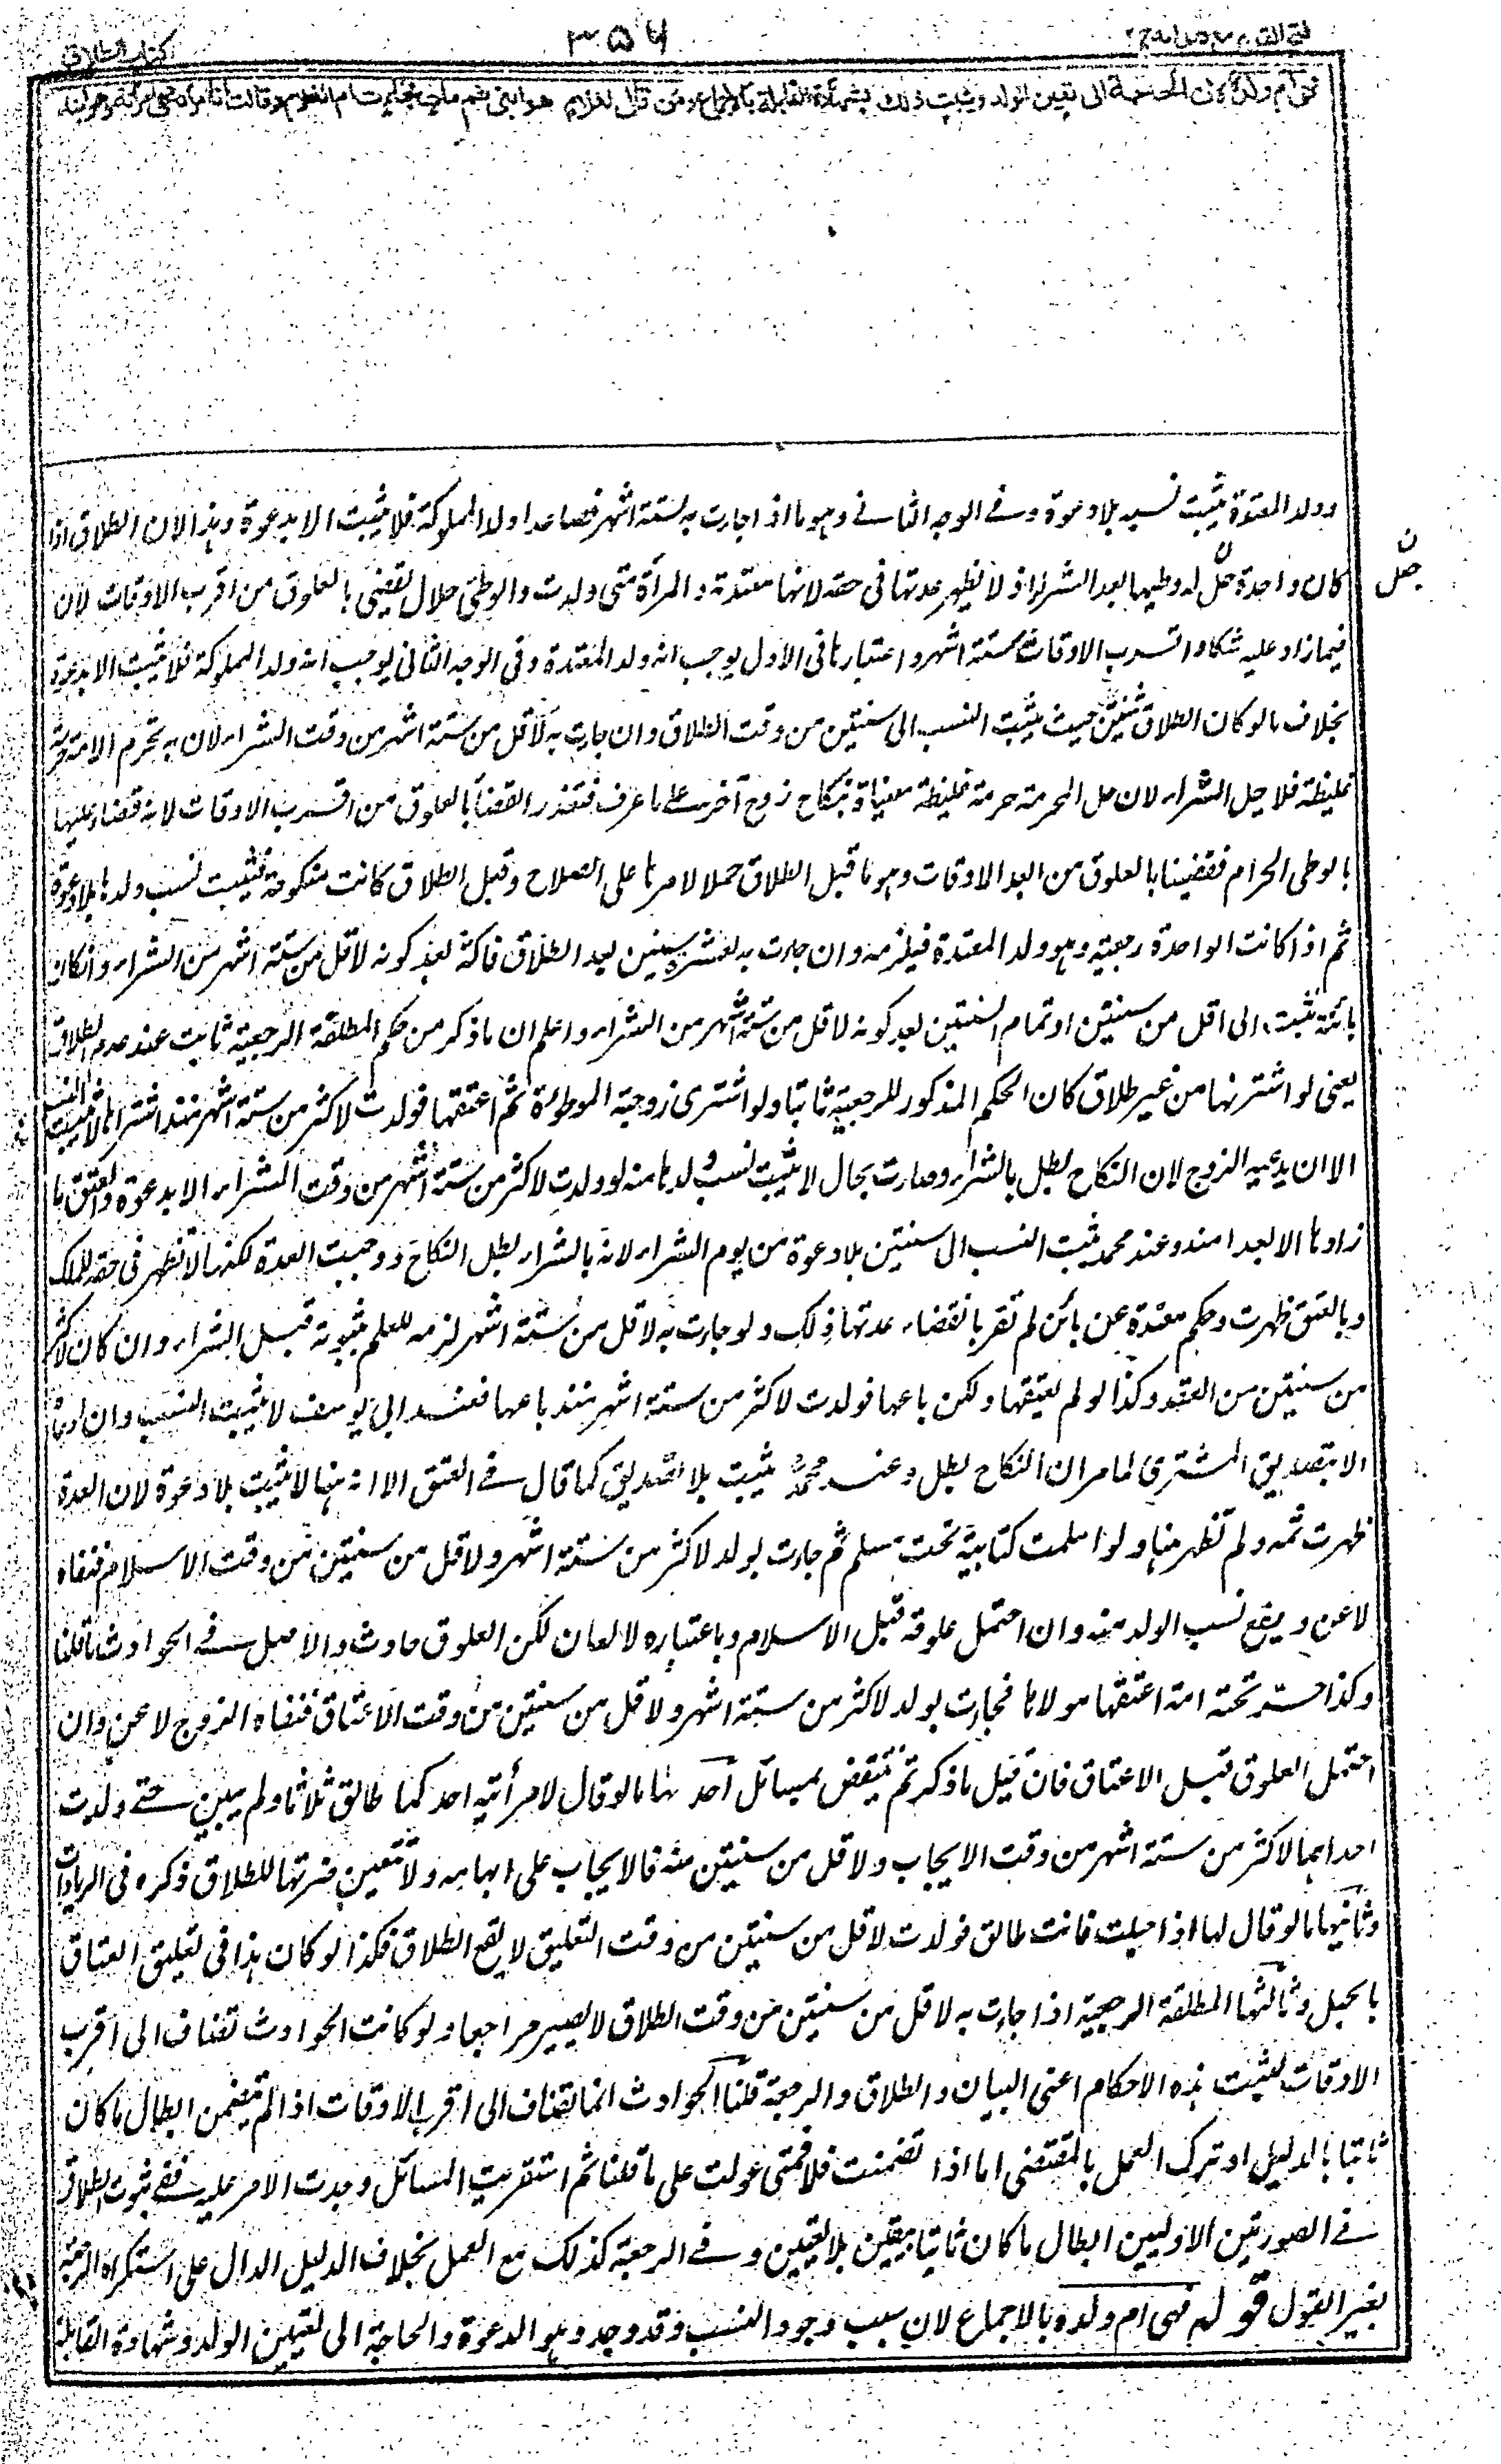 كتاب الطلاق
٣٥٦
فتح القدير مع هداية ج ٢
فهى ام ولده لان الحاجة الى تعيين الولد ويثبت ذلك بشهادة القابلة بالاجماع ومن قال لغلام هو ابنى ثم مات فجاءت ام الغلام وقالت انا امرأته فهى امرأته وهو ابنه
وولد المعتدة يثبت نسبه بلا دعوة وفى الوجه الثانى وهو ما اذا جاءت به لستة اشهر فصاعدا ولد المملوكة فلا يثبت الا بدعوة وهذا لان الطلاق اذا
ن
حل
كان واحدة حل له وطيها بعد الشراء اذ لا تظهر عدتها فى حقه لانها معتدته والمرأة متى ولدت والوطى حلال يقضى بالعلوق من اقرب الاوقات لان
فيما زاد عليه شكا واقرب الاوقات ستة اشهر واعتبارنا فى الاول يوجب انه ولد المعتدة وفى الوجه الثانى يوجب انه ولد المملوكة فلا يثبت الا بدعوة
بخلاف ما لو كان الطلاق ثنتين حيث يثبت النسب الى سنتين من وقت الطلاق وان جاءت به لاقل من ستة اشهر من وقت الشراء لان به تحرم الامة حرمة
غليظة فلا حل الشراء لان حل المحرمة حرمة غليظة مغياة بنكاح زوج آخر على ما عرف فتعذر القضاء بالعلوق من اقرب الاوقات لانه قضاء عليها
بالوطى الحرام فقضينا بالعلوق من ابعد الاوقات وهو ما قبل الطلاق حملا لامرها على الصلاح وقبل الطلاق كانت منكوحة فيثبت نسب ولدها بلا دعوة
ثم اذا كانت الواحدة رجعية وهو ولد المعتدة فيلزمه وان جاءت به لعشر سنين بعد الطلاق فاكثر بعد كونه لاقل من ستة اشهر من الشراء وانكان
بائنة ثبت الى اقل من سنتين او تمام السنتين بعد كونه لاقل من ستة اشهر من الشراء واعلم ان ما ذكر من حكم المطلقة الرجعية ثابت عند عدم الطلاق
يعنى لو اشترها من غير طلاق كان الحكم المذكور للرجعية ثابتا ولو اشترى زوجته الموطوءة ثم اعتقها فولدت لاكثر من ستة اشهر منذ اشتراها لا يثبت النسب
الا ان يدعيه الزوج لان النكاح بطل بالشراء وصارت بحال لا يثبت نسب ولدها منه لو ولدت لاكثر من ستة اشهر من وقت الشراء الا بدعوة والعتق ما
زادها الا بعدا منه وعند محمد يثبت النسب الى سنتين بلا دعوة من يوم الشراء لانه بالشراء بطل النكاح ووجبت العدة لكنها لا تظهر فى حقه للملك
وبالعتق ظهرت وحكم معتدة عن بائن لم تقر بانقضاء عدتها ذلك ولو جاءت به لاقل من ستة اشهر لزمه للعلم بثبوته قبل الشراء وان كان لاكثر
من سنتين من العقد وكذا لو لم يعتقها ولكن باعها فولدت لاكثر من ستة اشهر منذ باعها فعند ابى يوسف لا يثبت النسب وان ادعاه
الا بتصديق المشترى لما مر ان النكاح بطل وعند محمد يثبت بلا تصديق كما قال فى العتق الا انه هنا لا يثبت بلا دعوة لان العدة
ظهرت ثمه ولم تظهر هنا ولو اسلمت كتابية تحت مسلم ثم جاءت بولد لاكثر من ستة اشهر ولاقل من سنتين من وقت الاسلام فنفاه
لاعن ويقع نسب الولد منه وان احتمل علوقه قبل الاسلام وباعتباره لا لعان لكن العلوق حادث والاصل فى الحوادث ما قلنا
وكذا حر تحته امة اعتقها مولاها فجاءت بولد لاكثر من ستة اشهر ولاقل من سنتين من وقت الاعتاق فنفاه الزوج لاعن وان
احتمل العلوق قبل الاعتاق فان قيل ما ذكرتم ينتقض بمسائل احدها ما لو قال لامرأتيه احدكما طالق ثلاثا ولم يبين حتى ولدت
احداهما لاكثر من ستة اشهر من وقت الايجاب ولاقل من سنتين منه فالايجاب على ابهامه ولا تتعين ضرتها للطلاق ذكره فى الزيادات
وثانيها ما لو قال لها اذا حبلت فانت طالق فولدت لاقل من سنتين من وقت التعليق لا يقع الطلاق فكذا لو كان هذا فى تعليق العتاق
بالحبل وثالثها المطلقة الرجعية اذا جاءت به لاقل من سنتين من وقت الطلاق لا يصير مراجعا ولو كانت الحوادث تضاف الى اقرب
الاوقات لثبت هذه الاحكام اعنى البيان والطلاق والرجعة قلنا الحوادث انما تضاف الى اقرب الاوقات اذا لم يتضمن ابطال ما كان
ثابتا بالدليل او ترك العمل بالمقتضى اما اذا تضمنت فلا فمتى عولت على ما قلنا ثم استقريت المسائل وجدت الامر عليه ففى ثبوت الطلاق
فى الصورتين الاوليين ابطال ما كان ثابتا بيقين بلا يقين وفى الرجعة كذلك مع العمل بخلاف الدليل الدال على استكراه الرجعة
بغير القول قوله فهى ام ولده بالاجماع لان سبب وجود النسب وقد وجد وهو الدعوة والحاجة الى تعيين الولد وشهادة القابلة